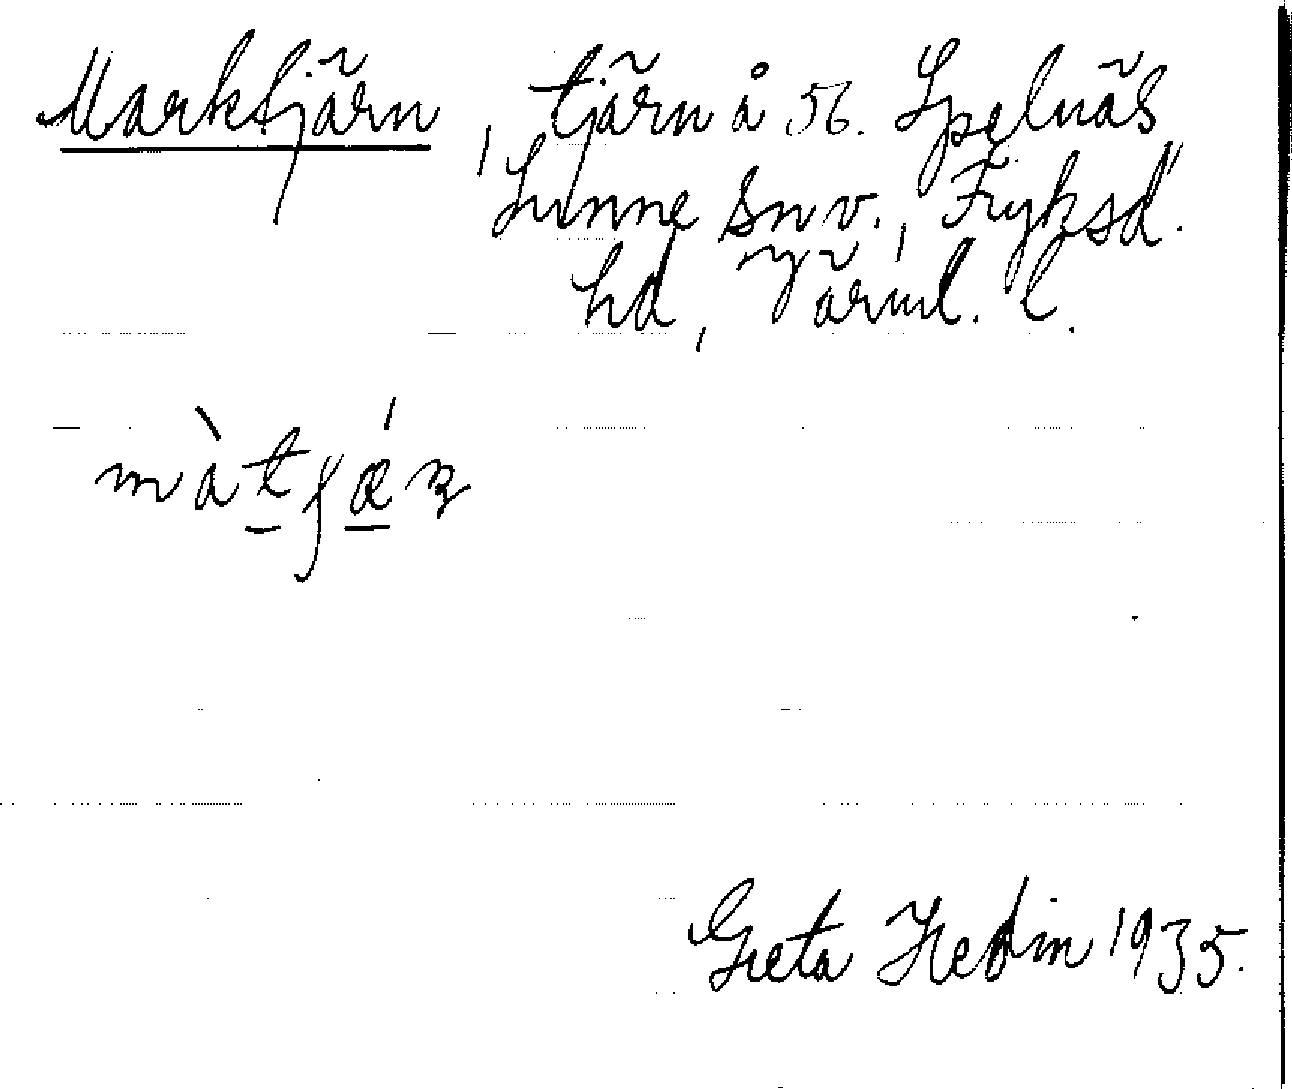 Marktjärn, tjärn å 56. Spelnäs,
Sunne snv., Fryksd.
hd, Värml. l.
Greta Hedin 1935.